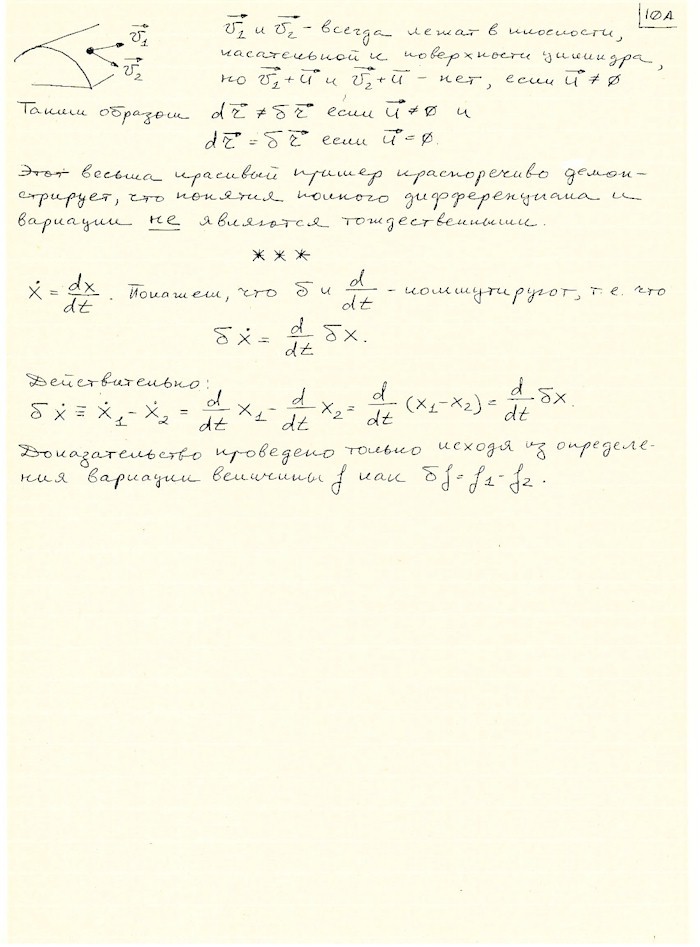 10A
v⃗₁ и v⃗₂ - всегда лежат в плоскости,
v⃗₁
касательной к поверхности цилиндра,
v⃗₂
но v⃗₁+u⃗ и v⃗₂+u⃗ - нет, если u⃗ ≠ 0
Таким образом dr⃗ ≠ δr⃗ если u⃗ ≠ 0 и
dr⃗ = δr⃗ если u⃗ = 0.
Этот весьма красивый пример красноречиво демон-
стрирует, что понятия полного дифференциала и
вариации не являются тождественными.
* * *
ẋ = dx/dt. Покажем, что δ и d/dt - коммутируют, т.е. что
δẋ = d/dt δx.
Действительно:
δẋ ≡ ẋ₁ - ẋ₂ = d/dt x₁ - d/dt x₂ = d/dt (x₁-x₂) = d/dt δx.
Доказательство проведено только исходя из определе-
ния вариации величины f как δf = f₁ - f₂.